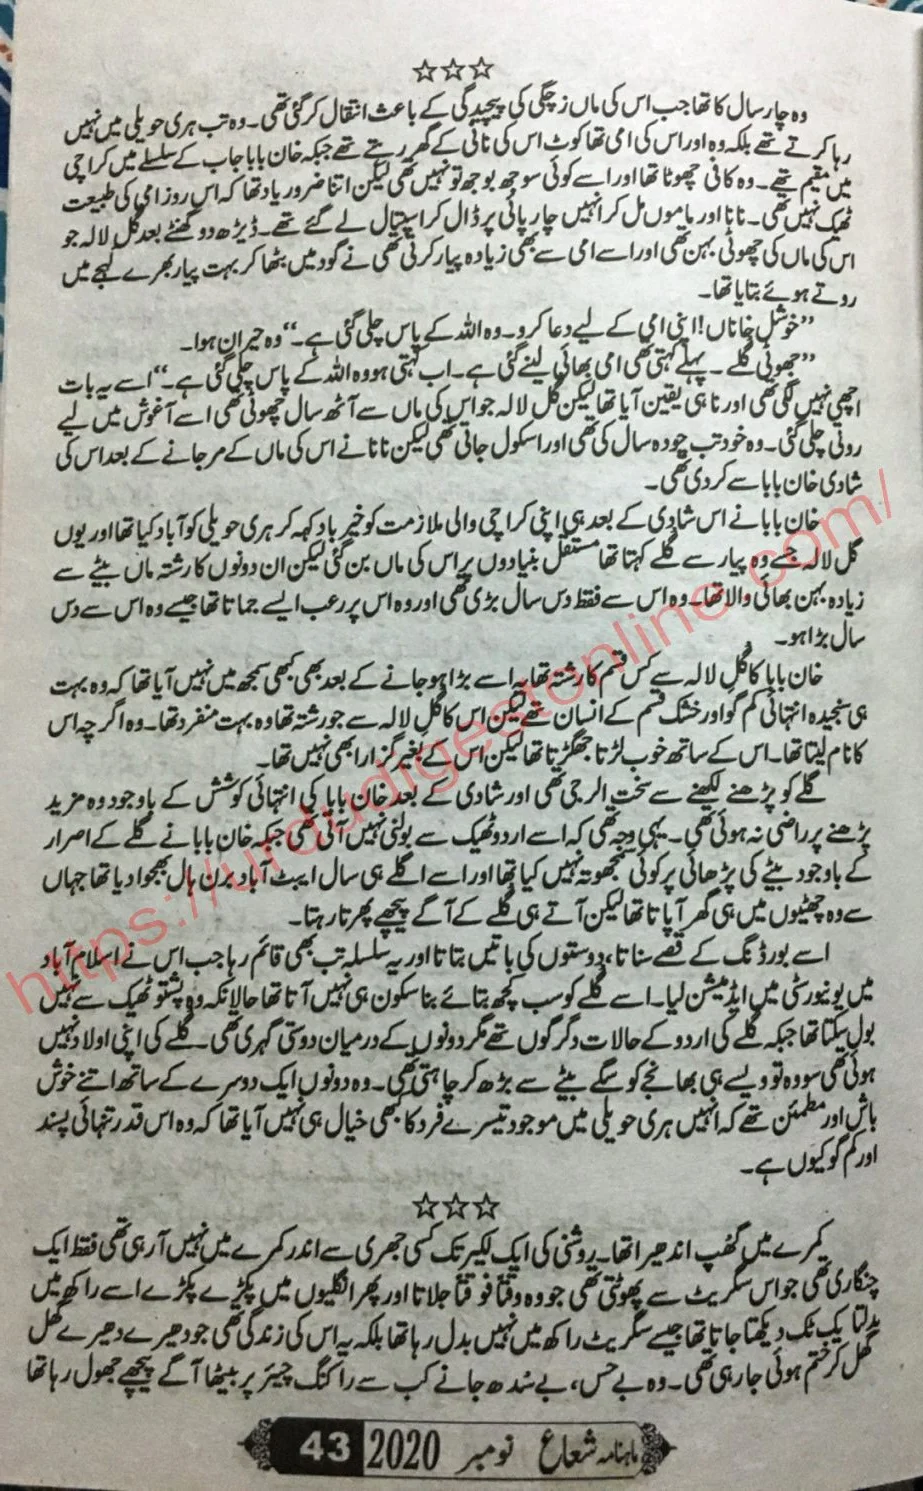 ☆☆☆
وہ چار سال کا تھا جب اس کی ماں زچگی کی پیچیدگی کے باعث انتقال کر گئی تھی۔ وہ تب ہری حویلی میں نہیں
رہا کرتے تھے بلکہ وہ اور اس کی امی تھا کوٹ اس کی نانی کے گھر رہتے تھے جبکہ خان بابا جاب کے سلسلے میں کراچی
میں مقیم تھے۔ وہ کافی چھوٹا تھا اور اسے کوئی سوجھ بوجھ تو نہیں تھی لیکن اتنا ضرور یاد تھا کہ اس روز امی کی طبیعت
ٹھیک نہیں تھی۔ نانا اور ماموں مل کر انہیں چارپائی پر ڈال کر اسپتال لے گئے تھے۔ ڈیڑھ دو گھنٹے بعد گل لالہ جو
اس کی ماں کی چھوٹی بہن تھی اور اسے امی سے بھی زیادہ پیار کرتی تھی نے گود میں بٹھا کر بہت پیار بھرے لہجے میں
روتے ہوئے بتایا تھا۔
”خوشل خاناں! اپنی امی کے لیے دعا کرو۔ وہ اللہ کے پاس چلی گئی ہے۔“ وہ حیران ہوا۔
”چھوٹی گلے۔ پہلے کہتی تھی امی بھائی لینے گئی ہے۔ اب کہتی ہو وہ اللہ کے پاس چلی گئی ہے۔“ اسے یہ بات
اچھی نہیں لگی تھی اور نا ہی یقین آیا تھا لیکن گل لالہ جو اس کی ماں سے آٹھ سال چھوٹی تھی اسے آغوش میں لیے
روتی چلی گئی۔ وہ خود تب چودہ سال کی تھی اور اسکول جاتی تھی لیکن نانا نے اس کی ماں کے مر جانے کے بعد اس کی
شادی خان بابا سے کر دی تھی۔
خان بابا نے اس شادی کے بعد ہی اپنی کراچی والی ملازمت کو خیر باد کہہ کر ہری حویلی کو آباد کیا تھا اور یوں
گل لالہ جسے وہ پیار سے گلے کہتا تھا مستقل بنیادوں پر اس کی ماں بن گئی لیکن ان دونوں کا رشتہ ماں بیٹے سے
زیادہ بہن بھائی والا تھا۔ وہ اس سے فقط دس سال بڑی تھی اور وہ اس پر رعب ایسے جماتا تھا جیسے وہ اس سے دس
سال بڑا ہو۔
خان بابا کا گل لالہ سے کس قسم کا رشتہ تھا یہ اسے بڑا ہو جانے کے بعد بھی کبھی سمجھ میں نہیں آیا تھا کہ وہ بہت
ہی سنجیدہ انتہائی کم گو اور خشک قسم کے انسان تھے لیکن اس کا گل لالہ سے جو رشتہ تھا وہ بہت منفرد تھا۔ وہ اگرچہ اس
کا نام لیتا تھا۔ اس کے ساتھ خوب لڑتا جھگڑتا تھا لیکن اس کے بغیر گزارا بھی نہیں تھا۔
گلے کو پڑھنے لکھنے سے سخت الرجی تھی اور شادی کے بعد خان بابا کی انتہائی کوشش کے باوجود وہ مزید
پڑھنے پر راضی نہ ہوئی تھی۔ یہی وجہ تھی کہ اسے اردو ٹھیک سے بولنی نہیں آتی تھی جبکہ خان بابا نے گلے کے اصرار
کے باوجود بیٹے کی پڑھائی پر کوئی سمجھوتہ نہیں کیا تھا اور اسے اگلے ہی سال ایبٹ آباد برن ہال بھجوا دیا تھا جہاں
سے وہ چھٹیوں میں ہی گھر آ پاتا تھا لیکن آتے ہی گلے کے آگے پیچھے پھرتا رہتا۔
اسے بورڈنگ کے قصے سناتا، دوستوں کی باتیں بتاتا اور یہ سلسلہ تب بھی قائم رہا جب اس نے اسلام آباد
میں یونیورسٹی میں ایڈمیشن لیا۔ اسے گلے کو سب کچھ بتائے بنا سکون ہی نہیں آتا تھا حالانکہ وہ پشتو ٹھیک سے نہیں
بول سکتا تھا جبکہ گلے کی اردو کے حالات دگرگوں تھے مگر دونوں کے درمیان دوستی گہری تھی۔ گلے کی اپنی اولاد نہیں
ہوئی تھی سو وہ تو ویسے ہی بھانجے کو سگے بیٹے سے بڑھ کر چاہتی تھی۔ وہ دونوں ایک دوسرے کے ساتھ اتنے خوش
باش اور مطمئن تھے کہ انہیں ہری حویلی میں موجود تیسرے فرد کا کبھی خیال ہی نہیں آیا تھا کہ وہ اس قدر تنہائی پسند
اور کم گو کیوں ہے۔
☆☆☆
کمرے میں گھپ اندھیرا تھا۔ روشنی کی ایک لکیر تک کسی جھری سے اندر کمرے میں نہیں آ رہی تھی فقط ایک
چنگاری تھی جو اس سگریٹ سے پھوٹتی تھی جو وہ وقتاً فوقتاً جلاتا اور پھر انگلیوں میں پکڑے پکڑے اسے راکھ میں
بدلتا یک ٹک دیکھتا جاتا تھا جیسے سگریٹ راکھ میں نہیں بدل رہا تھا بلکہ یہ اس کی زندگی تھی جو دھیرے دھیرے گھل
گھل کر ختم ہوئی جا رہی تھی۔ وہ بے حس، بے سدھ جانے کب سے راکنگ چیئر پر بیٹھا آگے پیچھے جھول رہا تھا
ماہنامہ شعاع نومبر 2020 43
https://urdudigestonline.com/